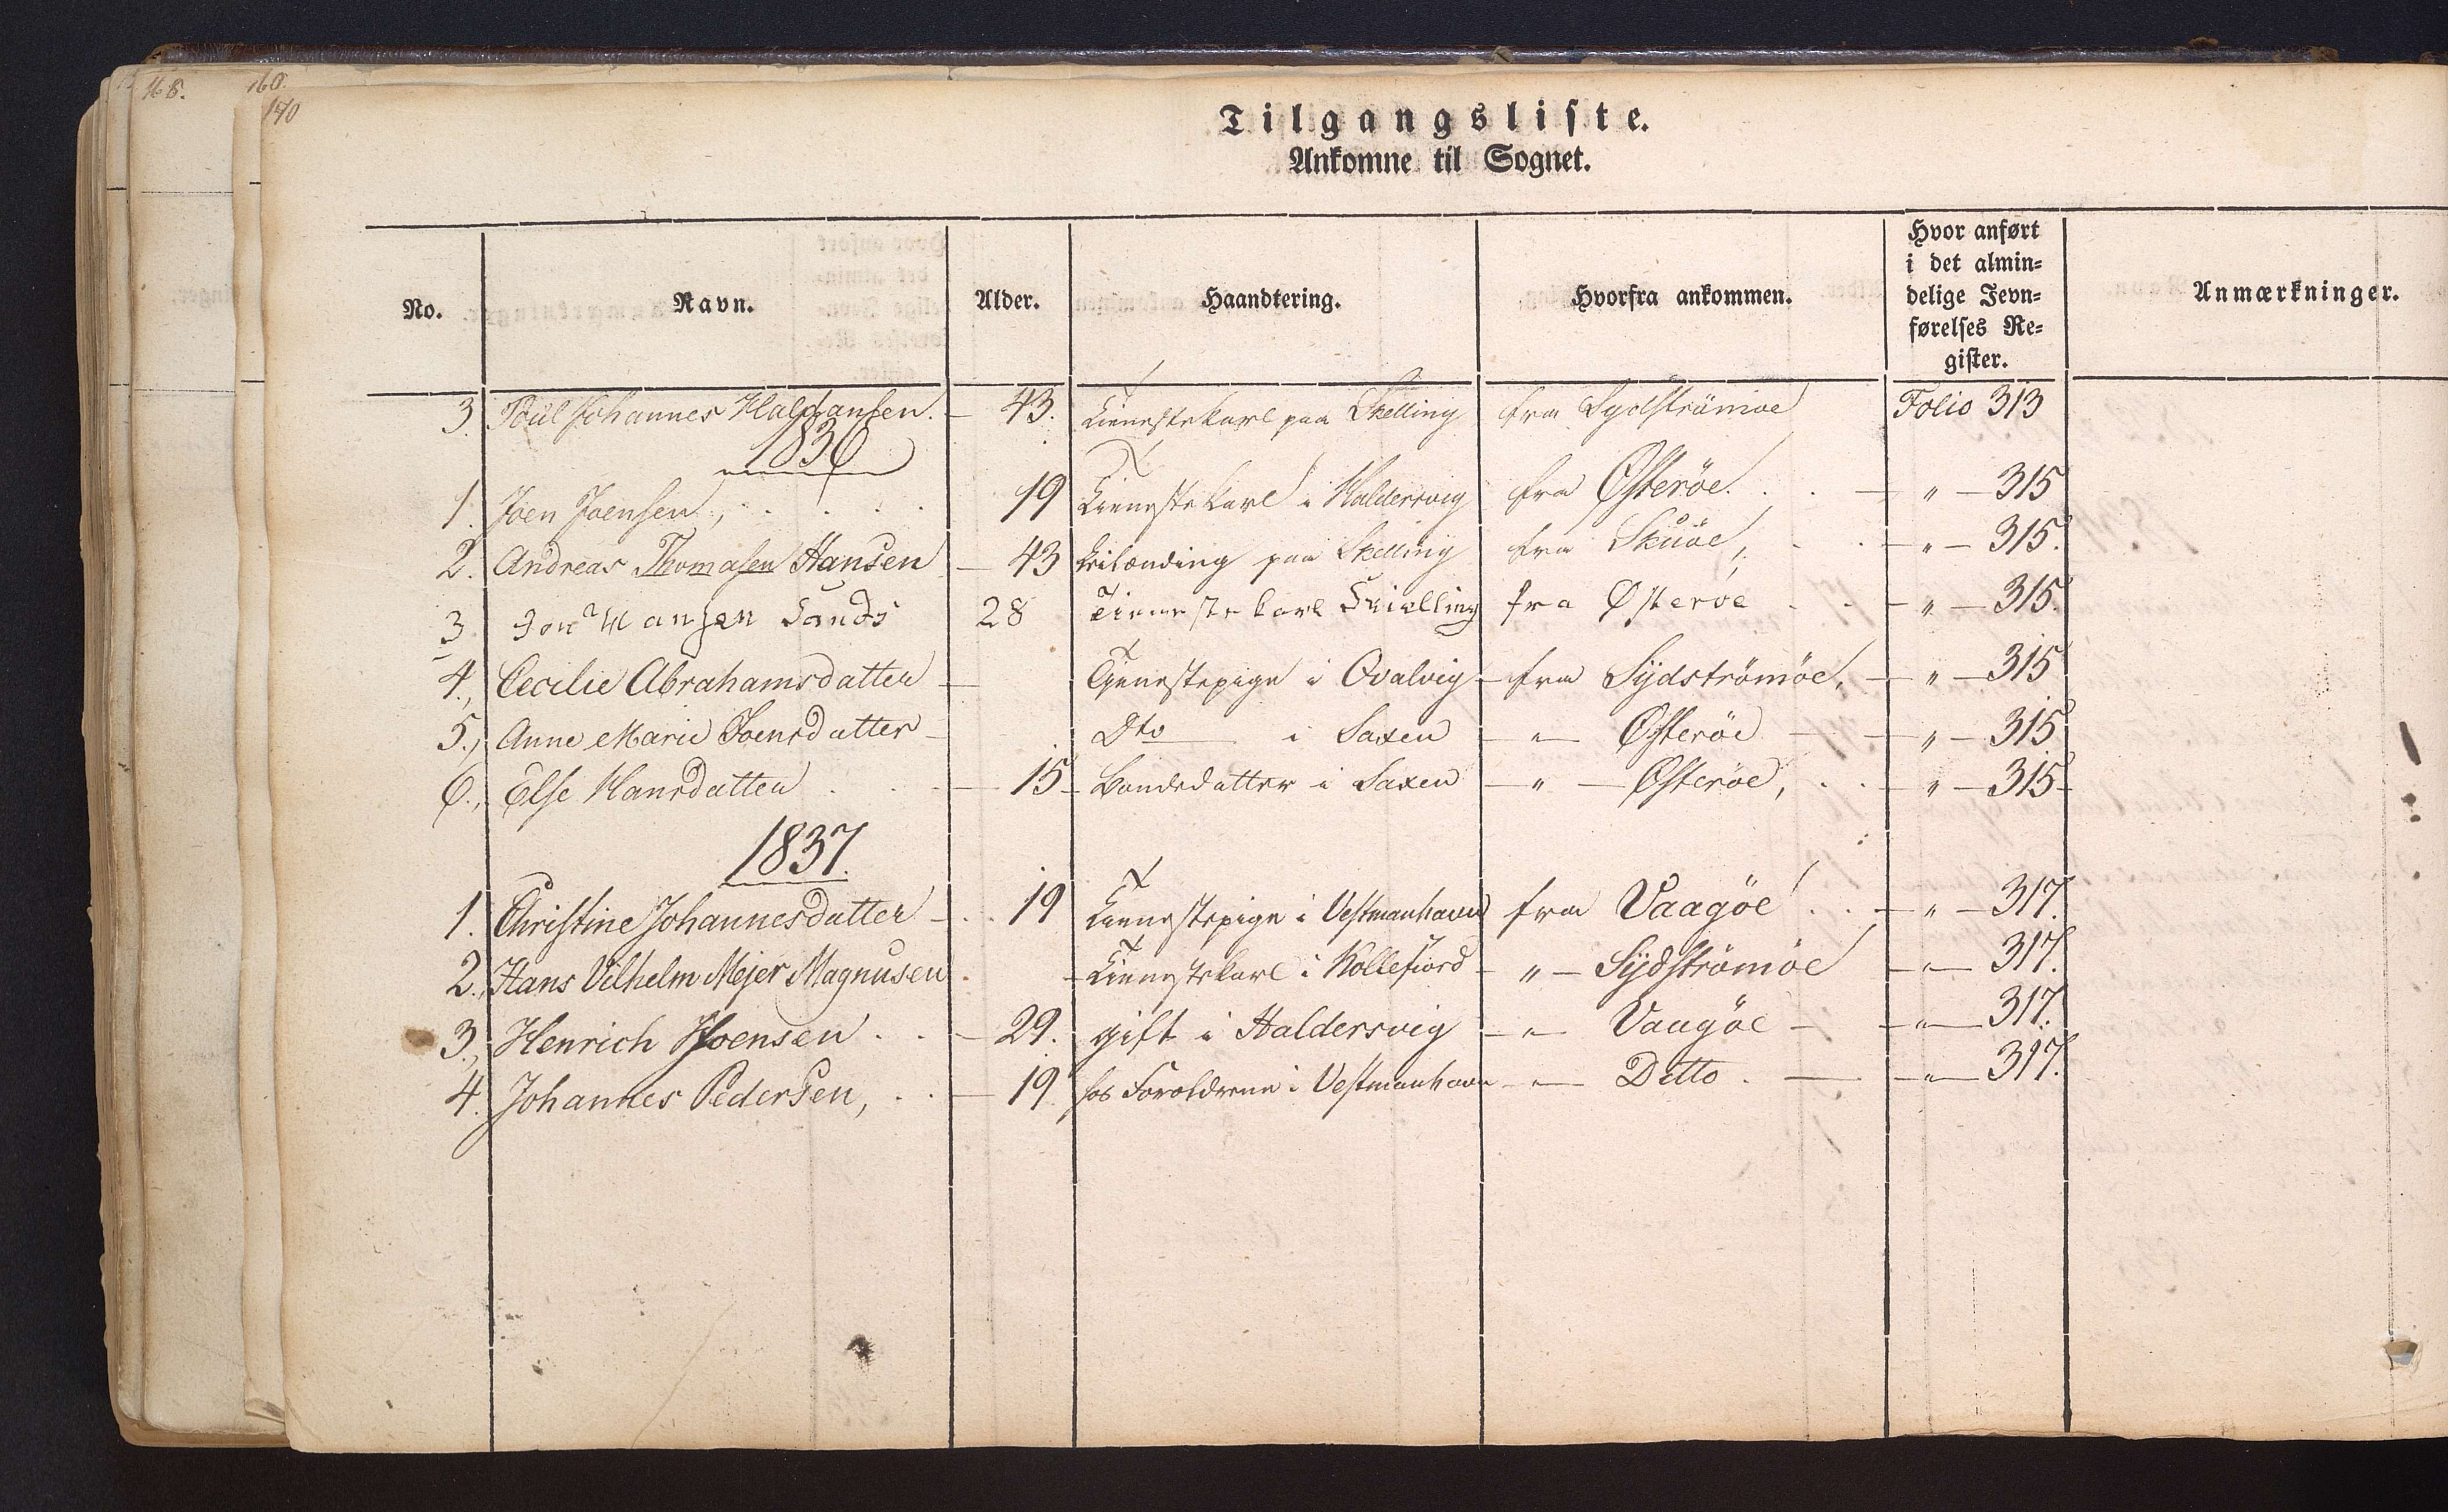 168.
160.
170
Tilgangsliste.
Ankomne til Sognet.
No. Navn. Alder. Haandtering. Hvorfra ankommen. Hvor anført i det almindelige Jevnførelses Register. Anmærkninger.
3. Poul Johannes Halgansen. - 43. Tienestekarl paa Skelling fra Sydströmöe Folio 313
1836
1. Joen Joensen, 19 Tienestekarl i Haldersvig fra Østeröe. - " - 315
2. Andreas Thomasen Hansen - 43 paa Skelling fra Skuöe, - " - 315.
3 Jon Hansen Sands 28 Tieneste karl Skielling fra Østeröe - " - 315.
4., Cecilie Abrahamsdatter - Tjenestepige i Qvalvig - fra Sydströmöe, - " - 315
5., Anne Marie Joensdatter - Dto i Saxen - " - Østeröe - " - 315
6., Else Hansdatter - 15 - Bondedatter i Saxen - " - Østeröe, - " - 315 -
1837.
1. Christine Johannesdatter - 19 Tienestepige i Vestmanhavn fra Vaagöe - " - 317.
2., Hans Vilhelm Mejer Magnusen - Tienestekarl i Kollefiord - " - Sydströmöe - " - 317.
3., Henrich Joensen - 29. gift i Haldersvig - " - Vaagöe - - " - 317.
4. Johannes Pedersen, - 19 hos Forældrene i Vestmanhavn - " - Ditto. - - " - 317.